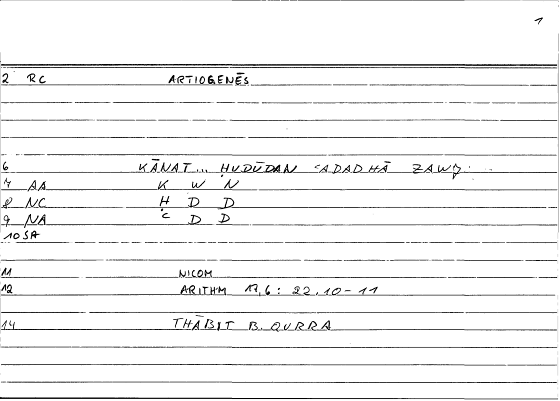 1
2 RC ARTIOGENĒS
6 KĀNAT... ḤUDŪDAN ʿADADHĀ ZAWǦ
7 AA K W N
8 NC Ḥ D D
9 NA ʿ D D
10 SA
11 NICOM
12 ARITHM 17,6: 22.10-11
14 THĀBIT B. QURRA